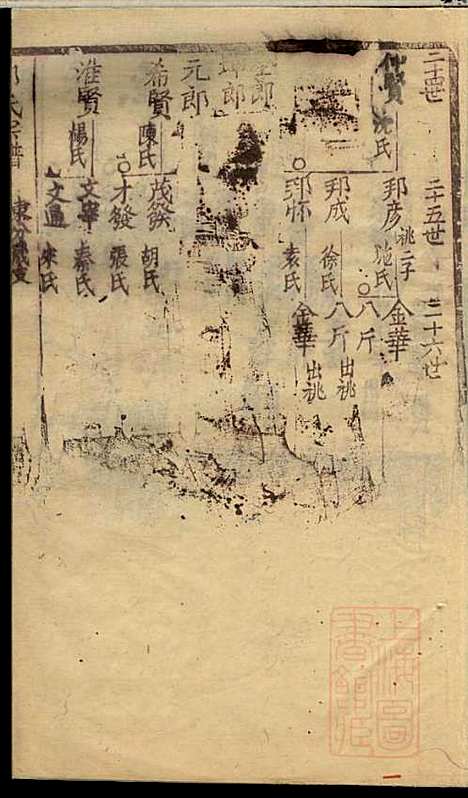 二十五世
二十六世
賢 沈氏
邦彦 施氏 祧二子
金華
八斤
邦成 徐氏
八斤 出祧
邦怀 袁氏
金華 出祧
郎
郎
元郎
希賢 陳氏
茂發 胡氏
才發 張氏
淮賢 楊氏
文 秦氏
文通 朱氏
氏宗譜
上海圖書館藏